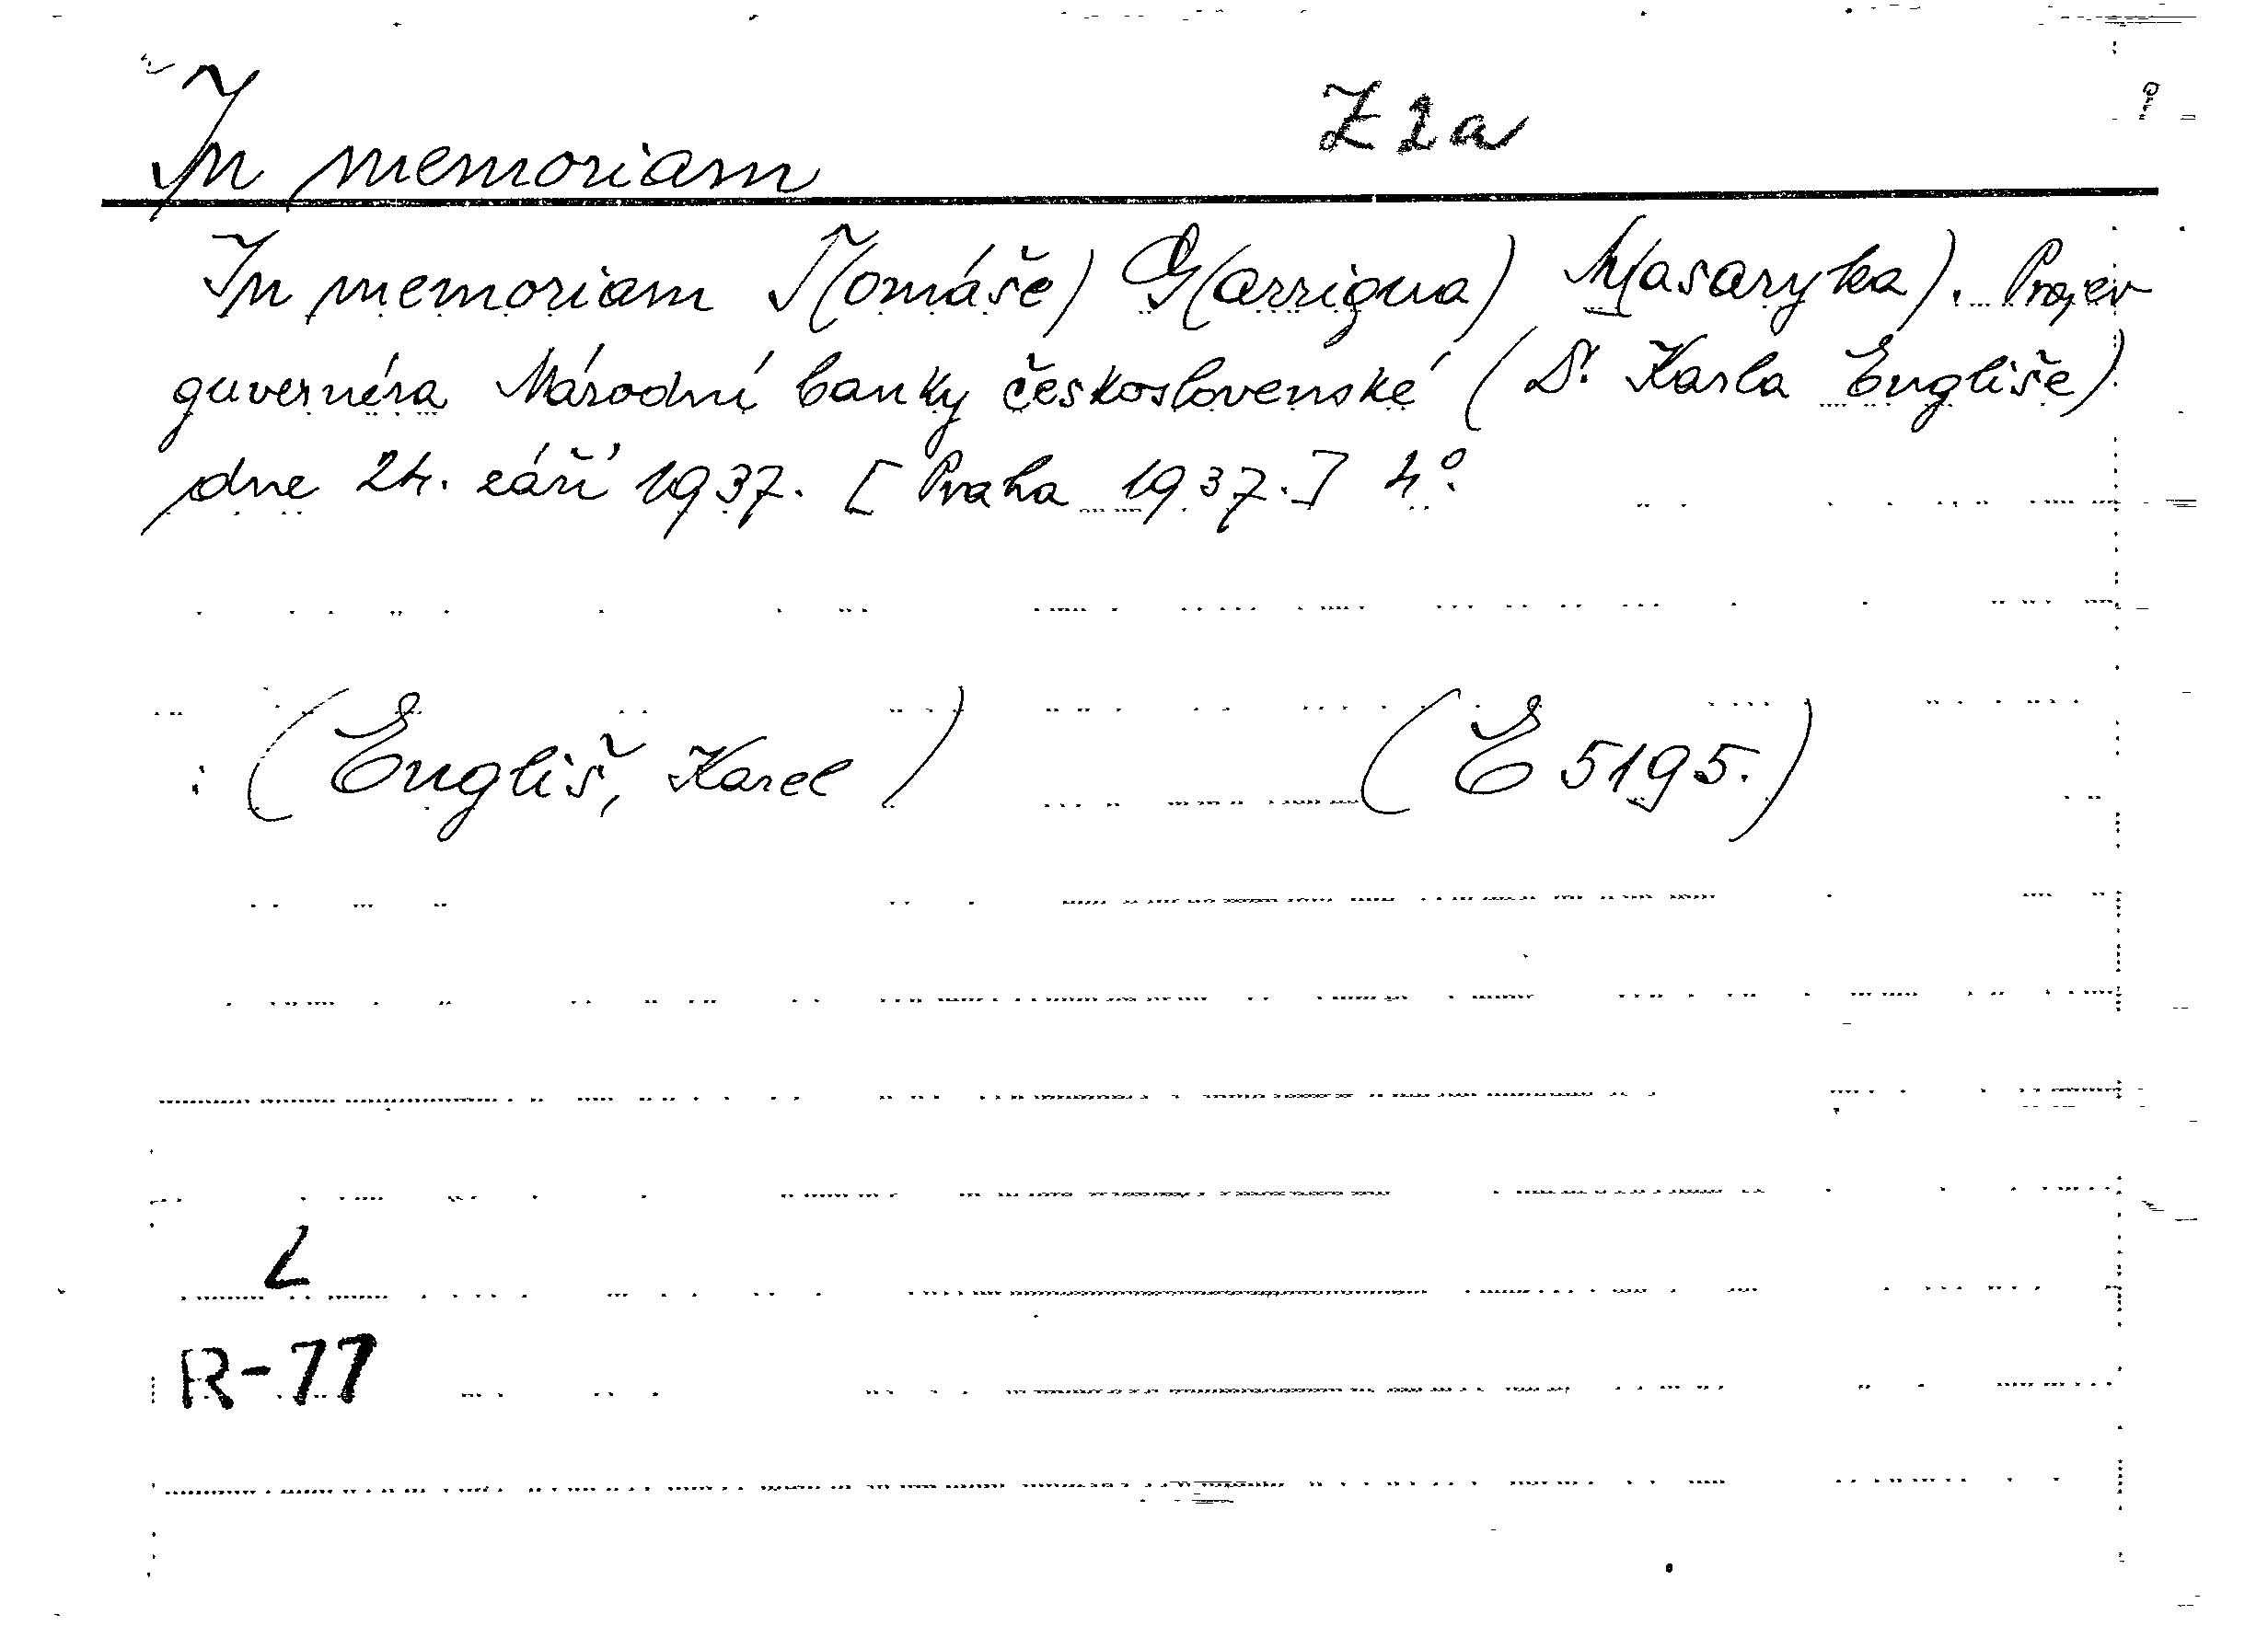 In memoriam Z 1a
In memoriam T(omáše) G(arrigua) M(asaryka). Projev
guvernéra Národní banky československé (Dr. Karla Engliše)
dne 24. září 1937. [Praha 1937.] 4°.
(Engliš, Karel) (E 5195.)
L
R-77